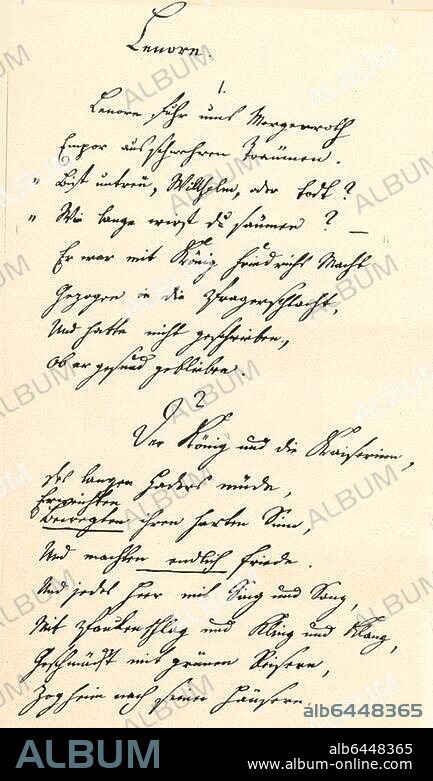 Lenore.
1.
Lenore fuhr ums Morgenroth
Empor aus schwehren Träumen.
„ Bist untreu, Willhelm, oder todt?
„ Wie lange wirst du säumen? —
Er war mit König Friedrichs Macht
Gezogen in die Pragerschlacht,
Und hatte nicht geschrieben,
Ob er gesund geblieben.
2
Der König und die Kaiserinn,
Des langen Haders müde,
Erweichten
Bewegten ihren harten Sinn,
Und machten endlich Friede.
Und jedes Heer mit Sing und Sang,
Mit Paukenschlag und Kling und Klang,
Geschmückt mit grünen Reisern,
Zog heim nach seinen Häusern.
alb6448365
ALBUM
alb6448365
www.album-online.com